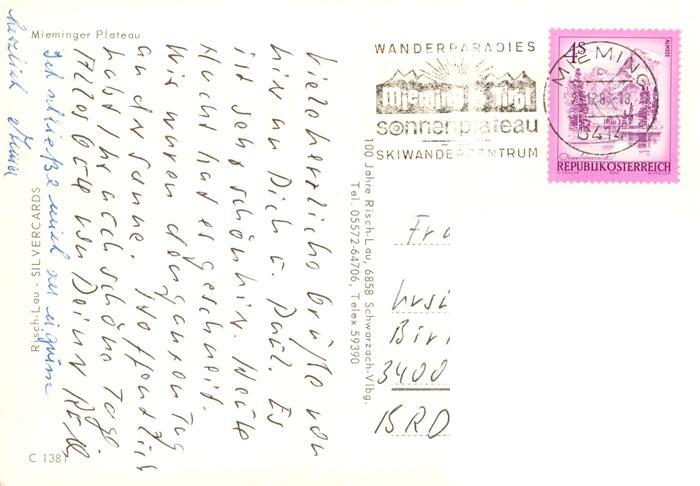 Mieminger Plateau
WANDERPARADIES
Mieming Tirol
sonnenplateau
SKIWANDERZENTRUM
MIEMING
6414
4S
ALMSEE
REPUBLIK ÖSTERREICH
viele herzliche Grüße von
hir an Dich u. Paul. Es
ist sehr schön hir. Heute
Nacht hat es geschneit.
Wir waren den ganzen Tag
an der Sonne. Hoffentlich
habt Ihr auch schöne Tage
Alles Gute von Deinr
Ich schließe mich an
Herzlich
Risch-Lau - SILVERCARDS
C 1381
100 Jahre Risch-Lau, 6858 Schwarzach-Vlbg.
Tel. 05572-64706, Telex 59390
Fra
Birk
3400
BRD